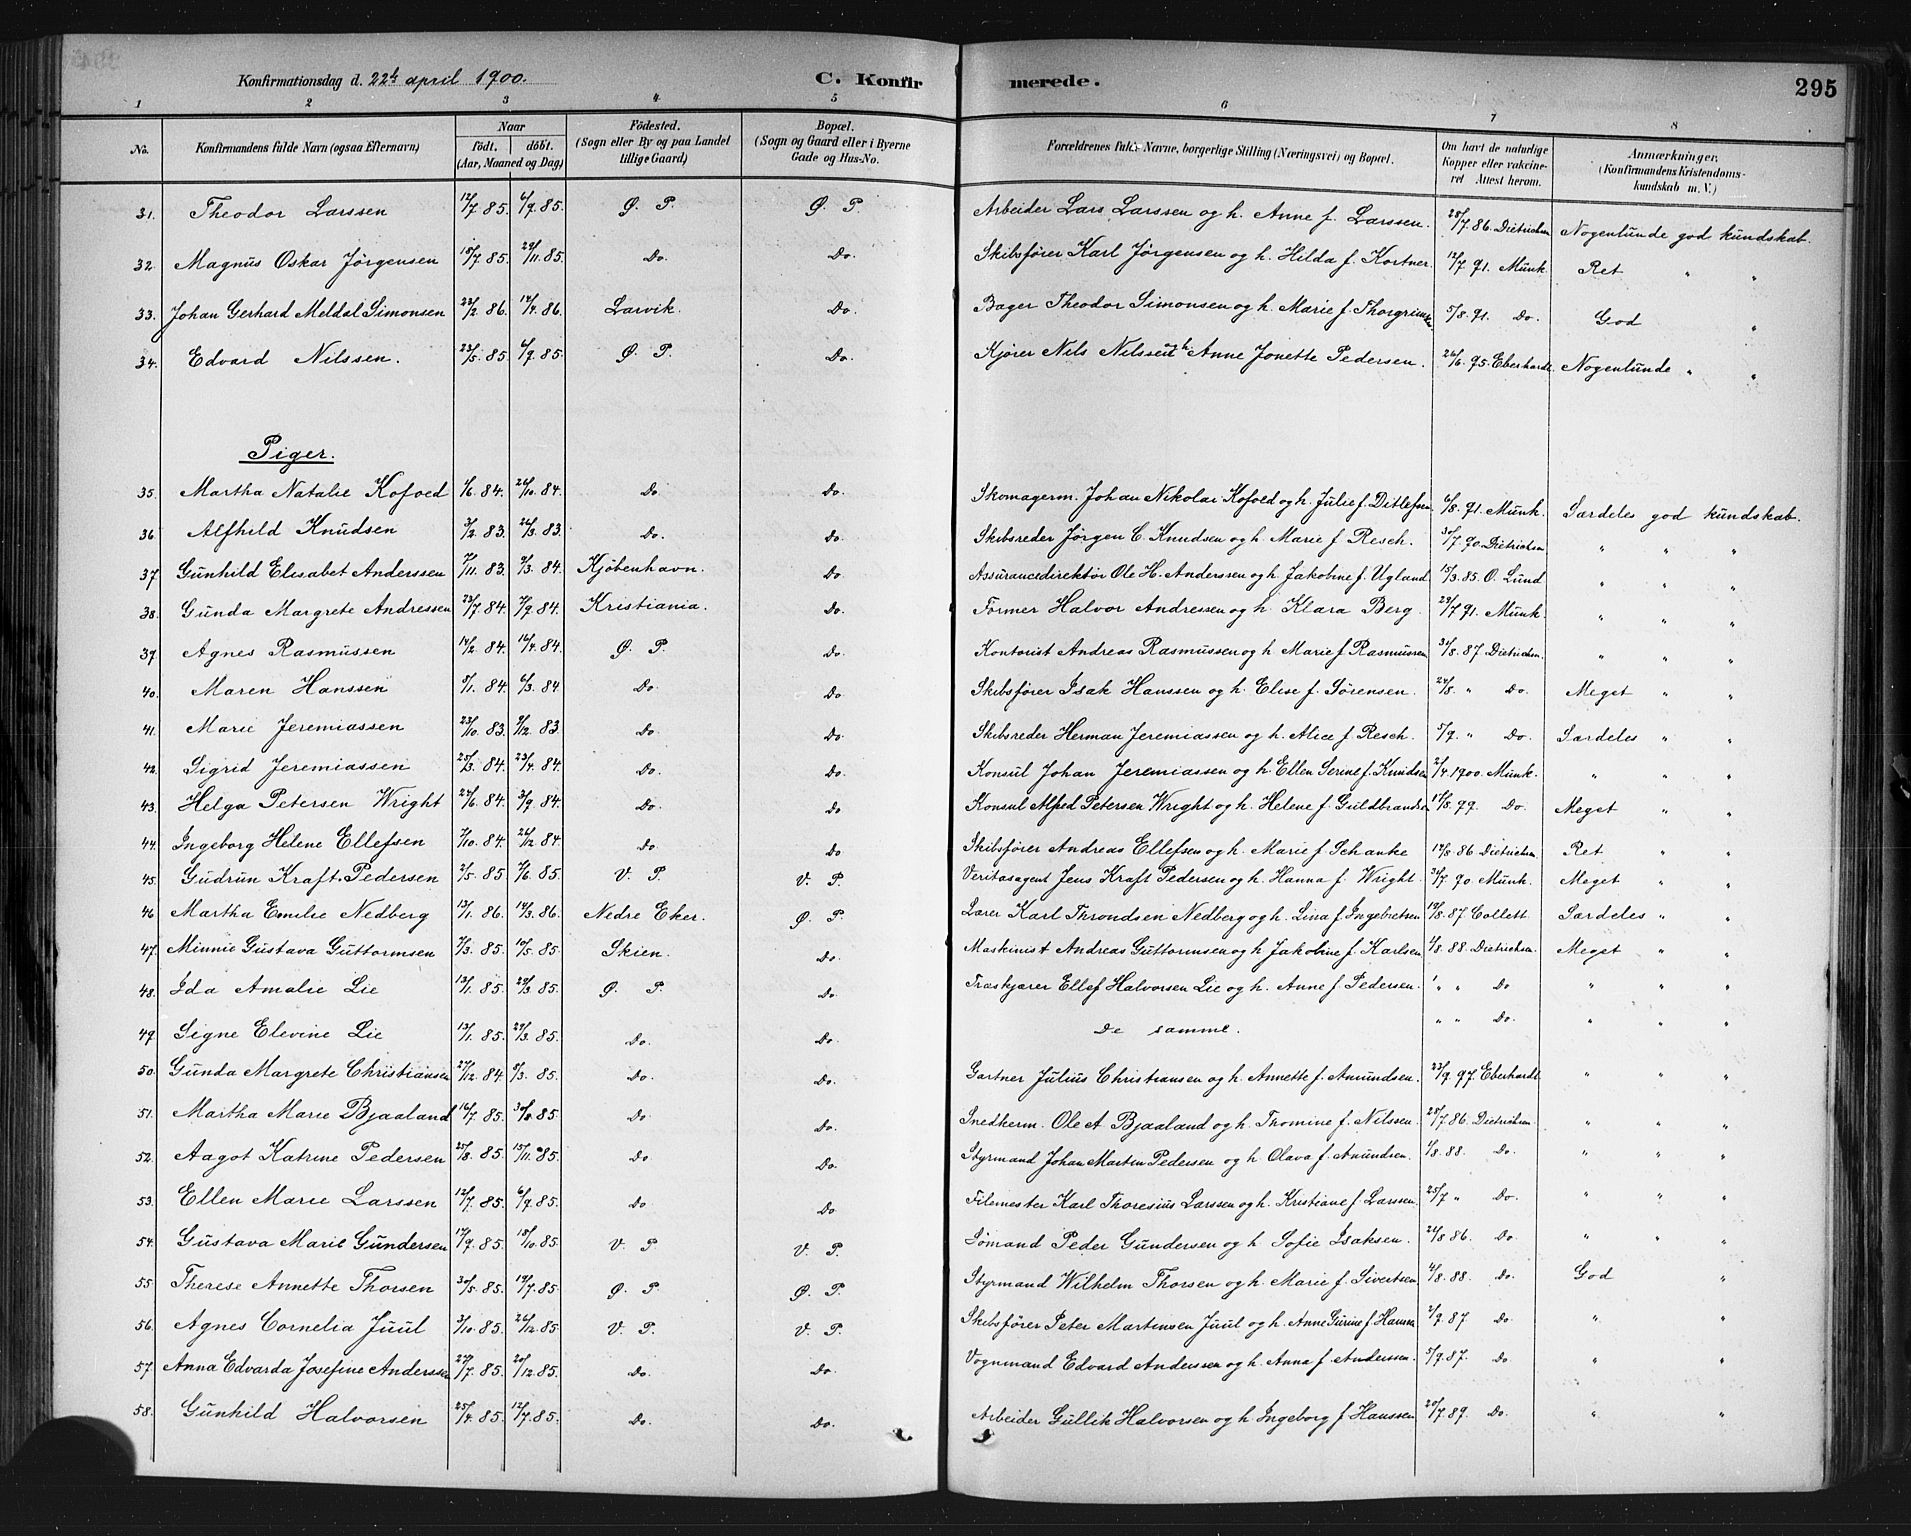 Konfirmationsdag d. 22de april 1900. C. Konfir merede. 295
1 2 3 4 5 6 7 8
No. Konfirmandens fulde Navn (ogsaa Efternavn) Naar födt. döbt. (Aar, Maaned og Dag) Födested. (Sogn eller By og paa Landet tillige Gaard) Bopæl. (Sogn og Gaard eller i Byerne Gade og Hus-No. Forældrenes fulde Navne, borgerlige Stilling (Næringsvei) og Bopæl. Om havt de naturlige Kopper eller vakcineret Attest herom. Anmærkninger, (Konfirmandens Kristendomskundskab m. V.)
31. Theodor Larssen 12/7 85. 6/9 85. Ø. P. Ø. P. Arbeider Lars Larssen og h. Anne f. Larssen. 28/7 86 Dietrichsen Nogenlunde god kundskab.
32. Magnus Oskar Jörgensen 18/7 85. 29/11 85. Do. Do. Skibsfører Karl Jørgensen og h. Hilda f. Kortner. 12/7 91. Munk. Ret " "
33. Johan Gerhard Meldal Simonsen 23/2 86. 14/4 86. Larvik. Do. Bager Theodor Simonsen og h. Marie f. Thorgrimsen 5/8. 91. Do. God "
34. Edvard Nilssen. 23/5 85. 6/9 85. Ø. P. Do. Kjører Nils Nilssen og h. Anne Jonette Pedersen. 26/6. 95. Eberhardt. Nogenlunde " "
Piger.
35. Martha Natalie Kofoed 4/6. 84. 26/10. 84. Do Do. Skomagerm. Johan Nikolai Kofoed og h. Julie f. Ditlefsen 6/8. 91. Munk. Særdeles god kundskab.
36. Alfhild Knudsen 3/2 83. 26/3 83. Do. Do. Skibsreder Jörgen C. Knudsen og h. Marie f. Resch. 30/7. 90. Dietrichsen " " "
37. Gunhild Elisabet Anderssen 7/11. 83. 9/3. 84. Kjöbenhavn. Do Assurancedirektör Ole H. Anderssen og h. Jakobine f. Ugland 15/3. 85. O. Lund " " "
38. Gunda Margrete Andressen 23/7 84. 7/9 84. Kristiania. Do. Former Halvor Andressen og h. Klara Berg. 29/7 91. Munk. " " "
37. Agnes Rasmussen 14/2 84. 16/4. 84. Ø. P. Do. Kontorist Andreas Rasmussen og h. Marie f. Rasmussen 31/8. 87 Dietrichsen. " " "
40. Maren Hanssen 8/1. 84. 6/3. 84. Do Do. Skibsfører Isak Hanssen og h. Elise f. Sørensen. 24/8. " Do. Meget " "
41. Marie Jeremiassen 23/10. 83. 9/12. 83. Do. Do. Skibsreder Herman Jeremiassen og h. Alice f. Resch. 5/9. " Do. Særdeles " "
42. Sigrid Jeremiassen 25/3. 84. 23/4. 84. Do. Do. Konsul Johan Jeremiassen og h. Ellen Serine f. Knudsen 2/4. 1900. Munk. " " "
43. Helga Petersen Wright 24/6. 84. 3/9. 84. Do. Do Konsul Alfred Petersen Wright og h. Helene f. Guldbrandsen 17/8. 99. Do. Meget " "
44. Ingeborg Helene Ellefsen 7/10. 84. 26/12. 84. Do Do Skibsfører Andreas Ellefsen og h. Marie f. Schanke 17/8. 86 Dietrichsen. Ret " "
45. Gudrun Kraft-Pedersen 2/5. 85. 7/6. 85. V. P. V. P. Veritasagent Jens Kraft Pedersen og h. Hanna f. Wright. 31/7. 90. Munk. Meget " "
46 Martha Emilie Nedberg 13/1. 86. 14/3. 86. Nedre Eker. Ø. P. Lærer Karl Throndsen Nedberg og h. Lina f. Ingebretsen 19/8. 87. Collett. Særdeles " "
47. Minnie Gustava Guttormsen 7/3. 85. 10/5. 85. Skien. Do. Maskinist Andreas Guttormsen og h. Jakobine f. Karlsen 4/8. 88. Dietrichsen. Meget " "
48. Ida Amalie Lie 13/1. 85. 29/3. 85. Ø. P. Do. Træskjærer Ellef Halvorsen Lie og h. Anne f. Pedersen. " " Do " " "
49. Signe Elevine Lie 13/1. 85. 29/3. 85. Do. Do. De samme. " " Do. " " "
50. Gunda Margrete Christiansen 27/12. 84. 8/3. 85. Do. Do. Gartner Julius Christiansen og h. Annette f. Amundsen. 23/9. 97. Eberhardt " " "
51. Martha Marie Bjaaland 16/7. 85. 30/8. 85. Do Do. Snedkerm. Ole A. Bjaaland og h. Thomine f. Nilssen. 28/7. 86. Dietrichsen. " " "
52. Aagot Katrine Pedersen 25/8. 85. 15/11. 85. Do Do. Styrmand Johan Martin Pedersen og h. Olava f. Amundsen. 4/8. 88. Do. " " "
53. Ellen Marie Larssen 12/7. 85. 6/9. 85. Do Do. Filemester Karl Thoresius Larssen og h. Kristiane f. Larssen. 25/7 " Do. " " "
54. Gustava Marie Gundersen 17/9. 85. 18/10. 85. V. P. V. P. Sømand Peder Gundersen og h. Sofie Isaksen. 21/8 86. Do. " " "
55. Therese Annette Thorsen 30/5. 85. 19/7. 85. Ø. P. Ø. P. Styrmand Wilhelm Thorsen og h. Marie f. Sivertsen. 4/8. 88. Do. God "
56. Agnes Cornelia Juul 3/10. 85. 26/12. 85. V. P. V. P. Skibsfører Peter Martinsen Juul og h. Anne Gurine f. Hansen 2/9. 87 Do " "
57. Anna Edvarda Josefine Anderssen 27/7. 85. 20/12. 85. Do. Do. Vognmand Edvard Anderssen og h. Anna f. Anderssen. 5/9. 87. Do " "
58. Gunhild Halvorsen 25/4. 85. 12/7. 85. Do. Do. Arbeider Gullik Halvorsen og h. Ingeborg f. Hanssen 20/7. 89. Do. " "